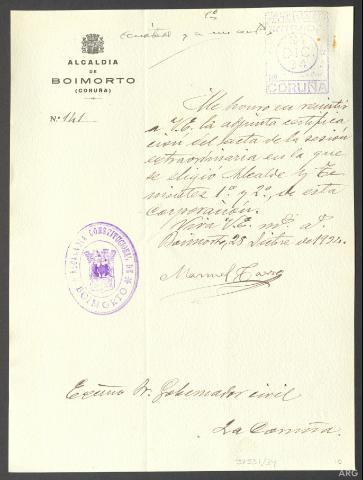 ALCALDIA
DE
BOIMORTO
(CORUÑA)
Nº 141
31
DIC.
CORUÑA
Me honro en remitir
a V.E. la adjunta certifica
ción del acta de la sesión
extraordinaria en la que
se eligió Alcalde y Te-
nientes 1º y 2º, de esta
Corporación.
Viva V.E. ms. as.
Boimorto, 28 Dicbre de 1924.
Manuel
ALCALDIA CONSTITUCIONAL DE
BOIMORTO
Excmo Sr. Gobernador civil
La Coruña
ARG